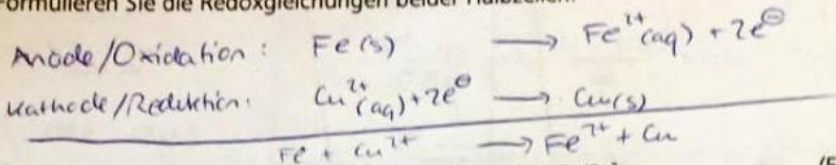 Formulieren Sie die Redoxgleichungen beider Halbzellen.
Anode/Oxidation: Fe(s) → Fe²⁺(aq) + 2e⊖
Kathode/Reduktion: Cu²⁺(aq) + 2e⊖ → Cu(s)
Fe + Cu²⁺ → Fe²⁺ + Cu